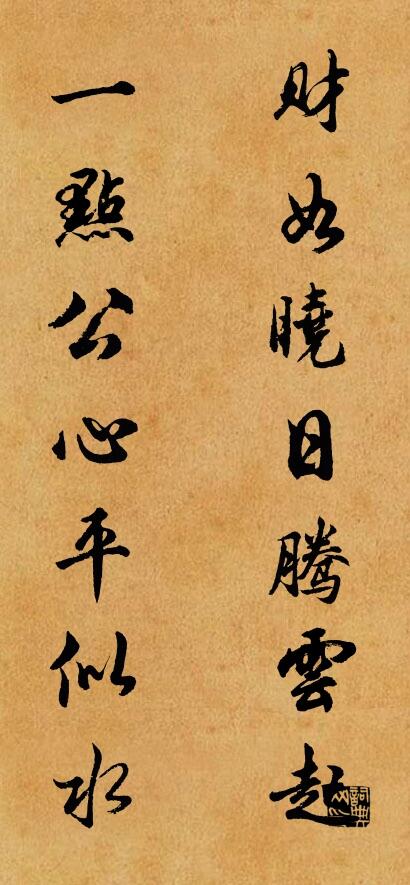 財如曉日騰雲起
一點公心平似水